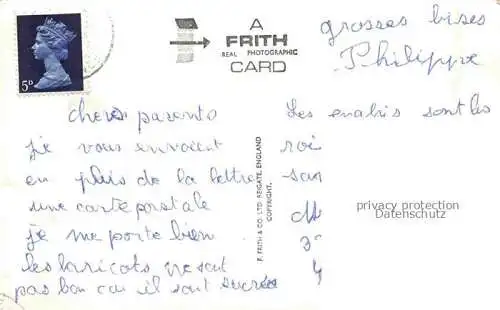 5D
A
FRITH
REAL PHOTOGRAPHIC
CARD
grosses bises
Philippe
chers parents
je vous envoient
en plus de la lettre
une carte postale
je me porte bien
les haricots ne sont
pas bon car il sont sucrée
Les enabis sont les
roi
san
F. FRITH & CO. LTD. REIGATE, ENGLAND
COPYRIGHT.
privacy protection
Datenschutz